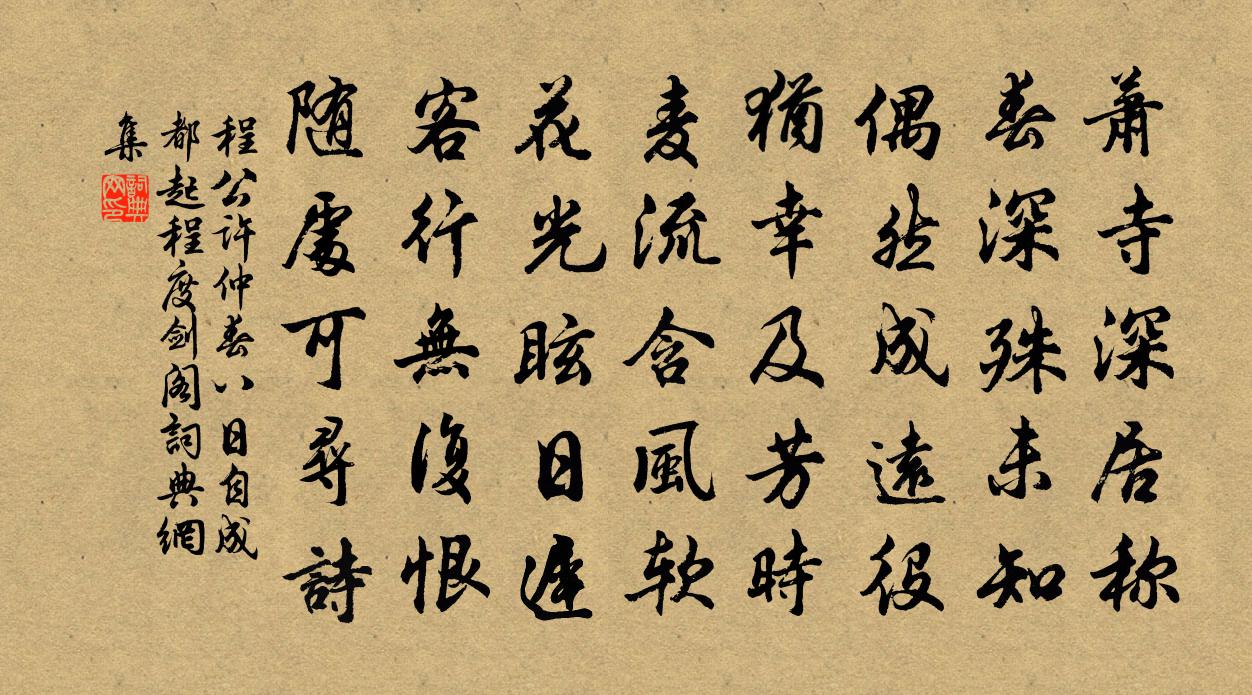 萧寺深居称
春深殊未知
偶然成遠役
猶幸及芳時
麦流含風软
花光眩日遲
客行無復恨
随處可尋詩
程公许仲春八日自成
都起程度剑阁詞典網
集
詞典網印